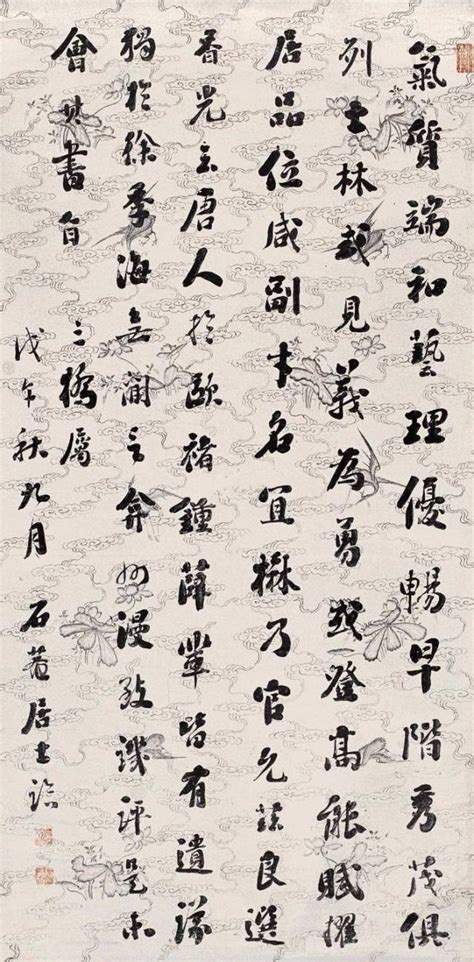 氣質端和藝理優暢早階秀茂俱
列士林或見義為勇或登高能賦擢
居品位咸副才名宜楙乃官允茲良選
香光云唐人於歐褚鍾薛輩皆有遺議
獨於徐季海無間言弇州漫致譏評是未
會其書旨 三橋屬
戊午秋九月 石菴居士臨